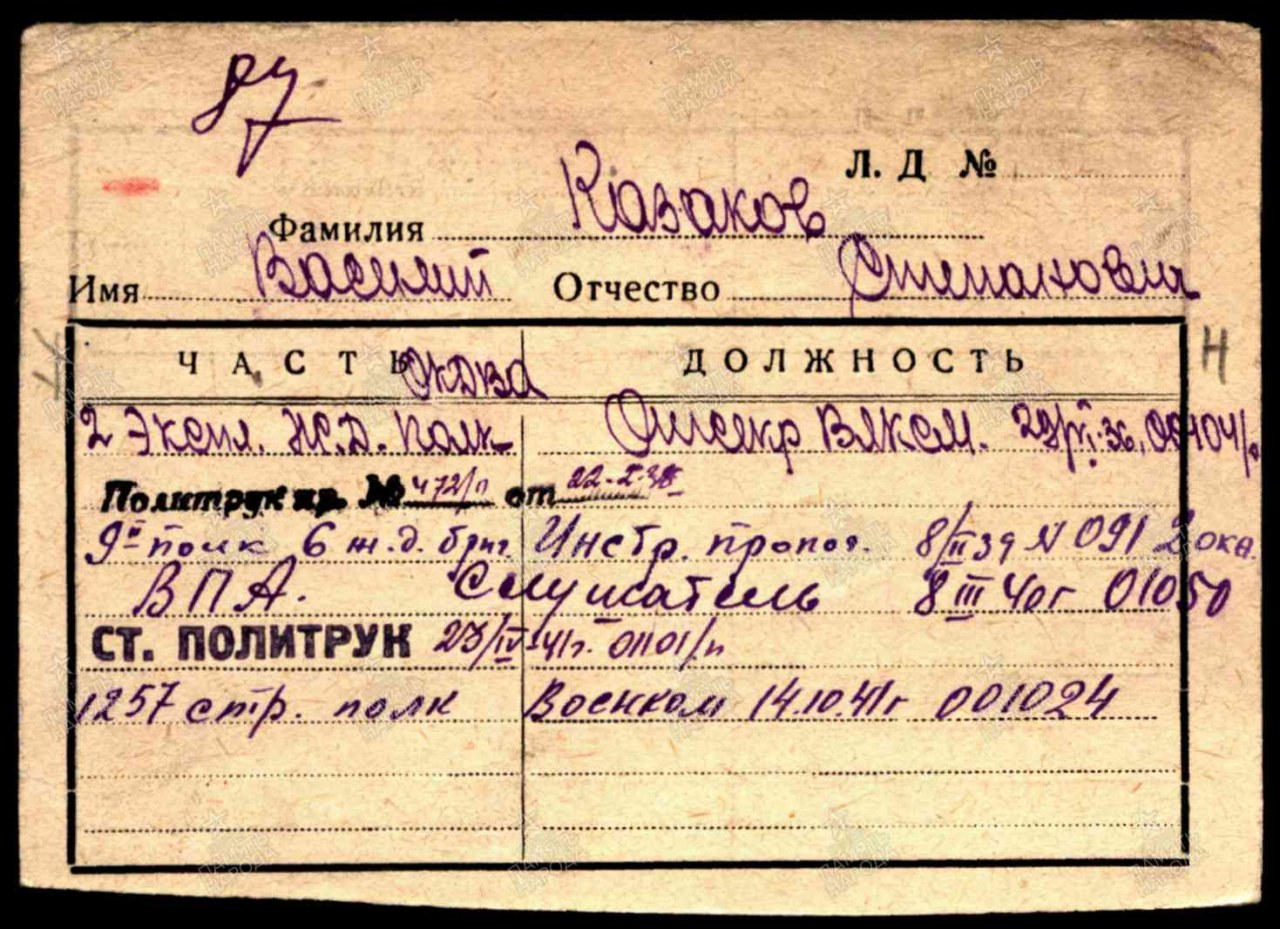 Л. Д №
Фамилия Казаков
Имя Василий Отчество Степанович
ЧАСТЬ ДОЛЖНОСТЬ
ОКДВА
2 Экспл. Ж.Д. полк Отсекр ВЛКСМ.
Политрук пр. № 472/п от
9й полк 6 ж.д. бриг. Инстр. пропаг. 8/II 39 N 091 2 ока.
ВПА. Слушатель 8 III 40г 01050
СТ. ПОЛИТРУК 23/IV-41г. 01101/п
1257 стр. полк Военком 14.10.41г 001024
Н